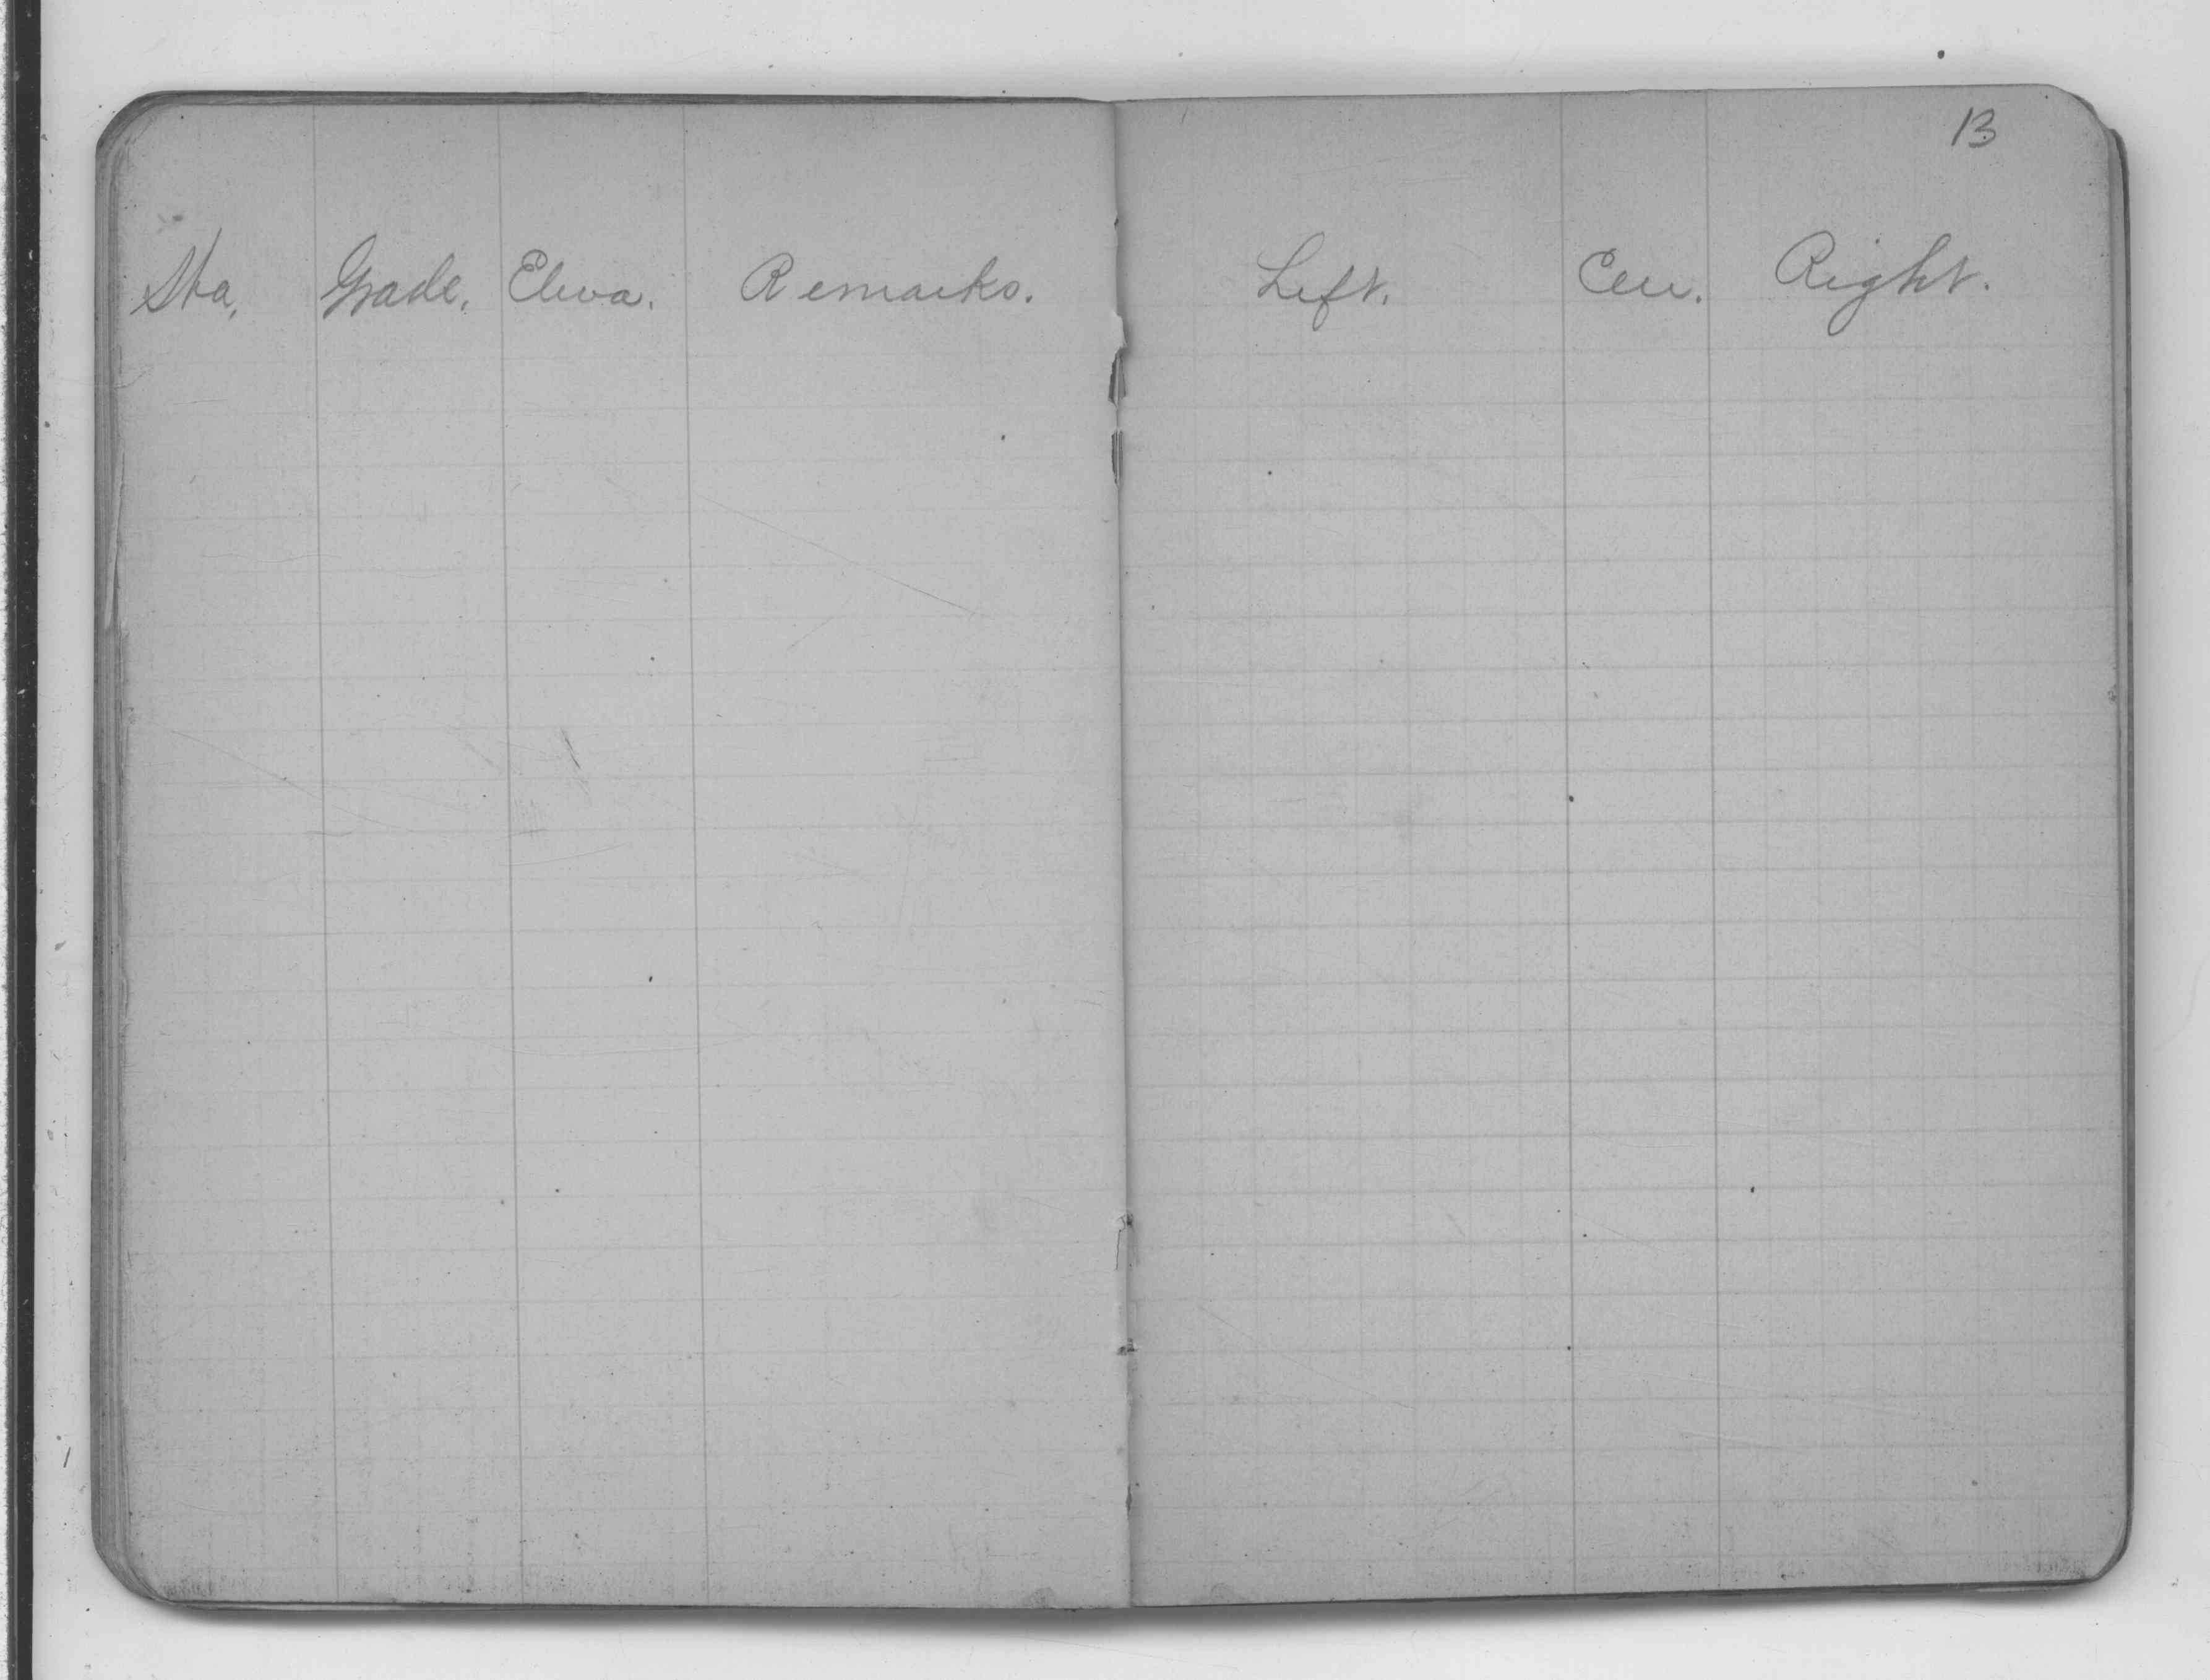 13
Sta. Grade. Eleva. Remarks. Left. Cen. Right.